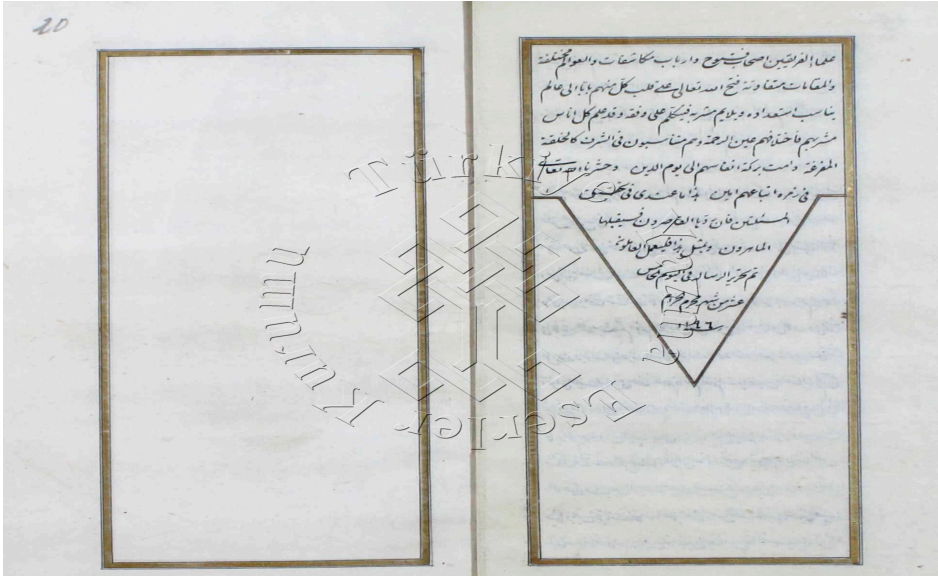 20
علماء الفريقين اصحاب فتوح وارباب مكاشفات والعوالم مختلفة
والمقامات متفاوتة فتح الله تعالى على قلب كل منهم بابا الى عالم
يناسب استعداده ويلايم مشربه فيتكلم على وفقه وقد علم كل اناس
مشربهم فاختلافهم عين الرحمة وهم متناسبون فى الشرف كالحلقة
المفرغة دامت بركة انفاسهم الى يوم الدين وحشرنا الله تعالى
فى زمرة اتباعهم امين هذا ما عندى فى تحقيق
المسئلتين فان ردها القاصرون فسيقبلها
الماهرون ولمثل هذا فليعمل العاملون
تم تحرير الرسالة فى اليوم الخامس
عشر من شهر محرم
Türkiye
Eserler Kurumu